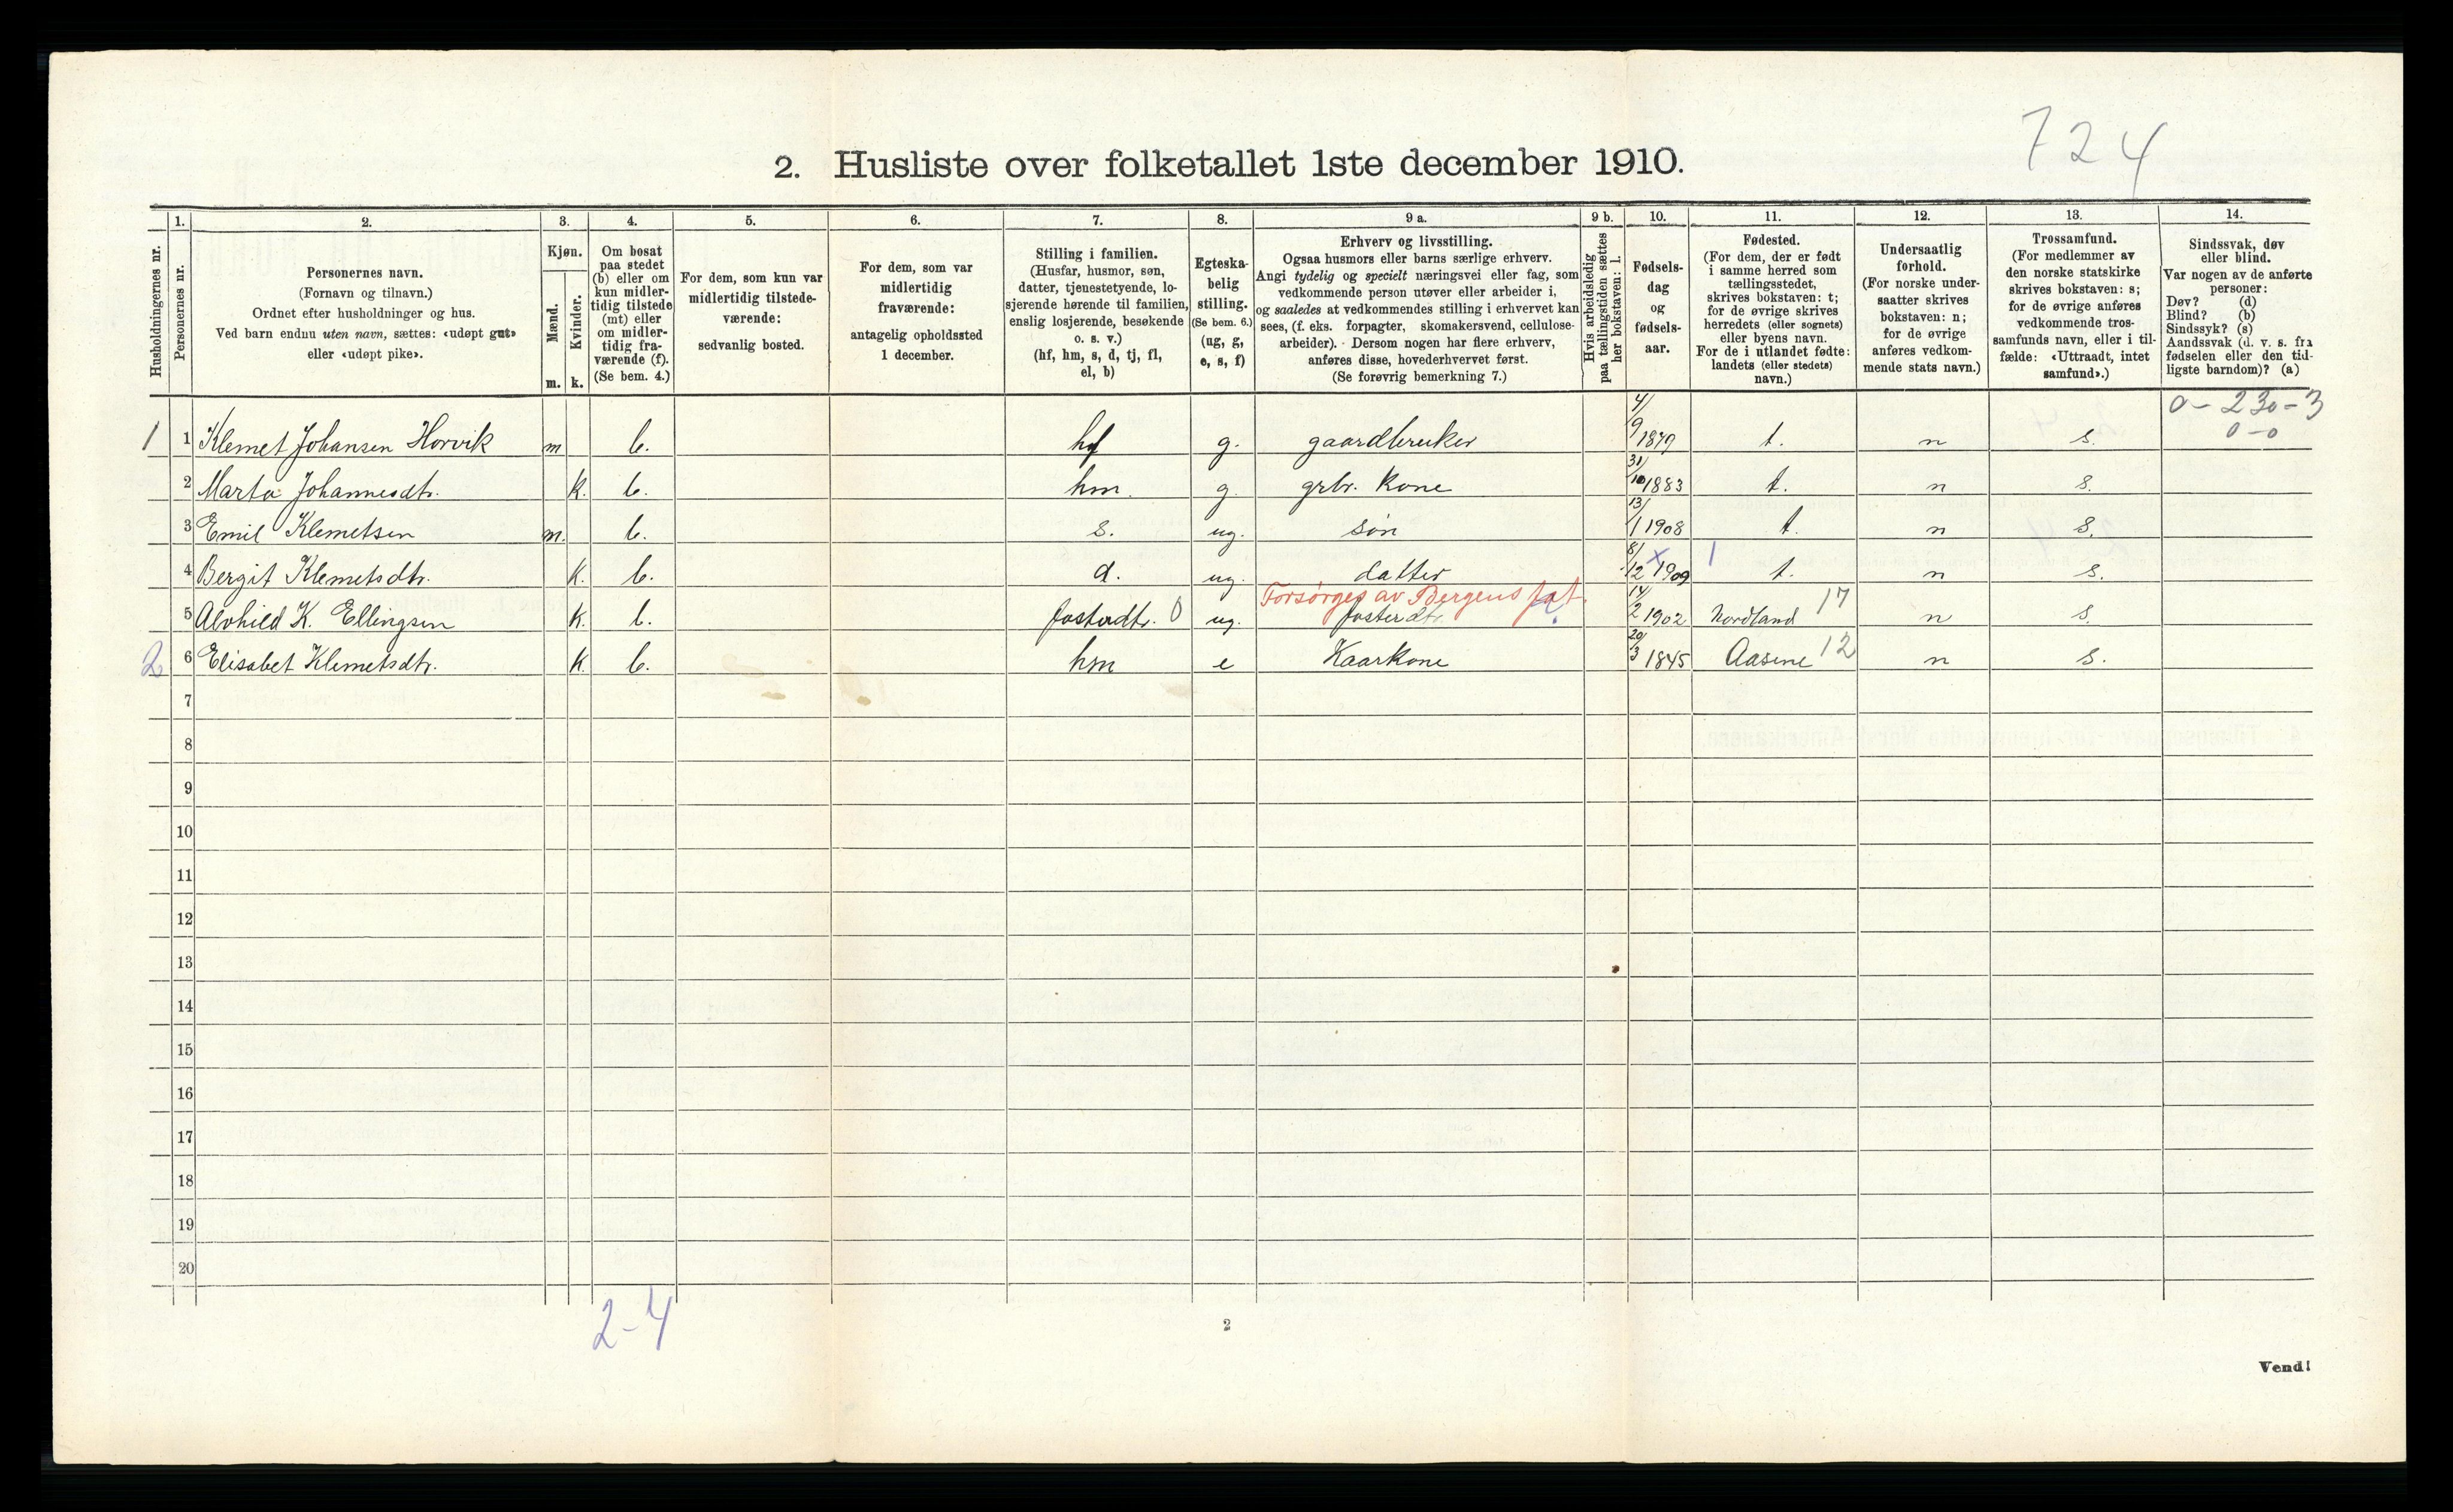 724
2. Husliste over folketallet 1ste december 1910.
Husholdningernes nr.
1.
Personernes nr.
2.
Personernes navn.
(Fornavn og tilnavn.)
Ordnet efter husholdninger og hus.
Ved barn endnu uten navn, sættes: «udøpt gut»
eller «udøpt pike».
3.
Kjøn.
Mænd.
Kvinder.
m. k.
4.
Om bosat
paa stedet
(b) eller om
kun midler-
tidig tilstede
(mt) eller
om midler-
tidig fra-
værende (f).
(Se bem. 4.)
5.
For dem, som kun var
midlertidig tilstede-
værende:
sedvanlig bosted.
6.
For dem, som var
midlertidig
fraværende:
antagelig opholdssted
1 december.
7.
Stilling i familien.
(Husfar, husmor, søn,
datter, tjenestetyende, lo-
sjerende hørende til familien,
enslig losjerende, besøkende
o. s. v.)
(hf, hm, s, d, tj, fl,
el, b)
8.
Egteska-
belig
stilling.
(Se bem. 6.)
(ug, g,
e, s, f)
9 a.
Erhverv og livsstilling.
Ogsaa husmors eller barns særlige erhverv.
Angi tydelig og specielt næringsvei eller fag, som
vedkommende person utøver eller arbeider i,
og saaledes at vedkommendes stilling i erhvervet kan
sees, (f. eks. forpagter, skomakersvend, cellulose-
arbeider). Dersom nogen har flere erhverv,
anføres disse, hovederhvervet først.
(Se forøvrig bemerkning 7.)
9 b.
Hvis arbeidsledig
paa tællingstiden sættes
her bokstaven: l.
10.
Fødsels-
dag
og
fødsels-
aar.
11.
Fødested.
(For dem, der er født
i samme herred som
tællingsstedet,
skrives bokstaven: t;
for de øvrige skrives
herredets (eller sognets)
eller byens navn.
For de i utlandet fødte:
landets (eller stedets)
navn.)
12.
Undersaatlig
forhold.
(For norske under-
saatter skrives
bokstaven: n;
for de øvrige
anføres vedkom-
mende stats navn.)
13.
Trossamfund.
(For medlemmer av
den norske statskirke
skrives bokstaven: s;
for de øvrige anføres
vedkommende tros-
samfunds navn, eller i til-
fælde: «Uttraadt, intet
samfund».)
14.
Sindssvak, døv
eller blind.
Var nogen av de anførte
personer:
Døv? (d)
Blind? (b)
Sindssyk? (s)
Aandssvak (d. v. s. fra
fødselen eller den tid-
ligste barndom)? (a)
0-230-3
0-0
1 1 Klemet Johansen Horvik m b. hf g. gaardbruker 4/9 1879 t. n s.
2 Marta Johannesdtr. k. b. hm. g. grbr. Kone 31/10 1883 t. n s.
3 Emil Klemetsen m. b. s. ug. søn 13/1 1908 t. n s.
4 Bergit Klemetsdtr. k. b. d. ug. datter 8/12 x 1909 1 t. n s.
Forsørges av Bergens fat.
5 Alvhild K. Ellingsen k. b. fosterdtr. 0 ug. fosterdtr. 14/2 1902 Nordland 17 n s.
2 6 Elisabet Klemetsdtr. k. b. hm e Kaarkone 20/3 1845 Aasene 12 n s.
7
8
9
10
11
12
13
14
15
16
17
18
19
20
2-4
2
Vend!